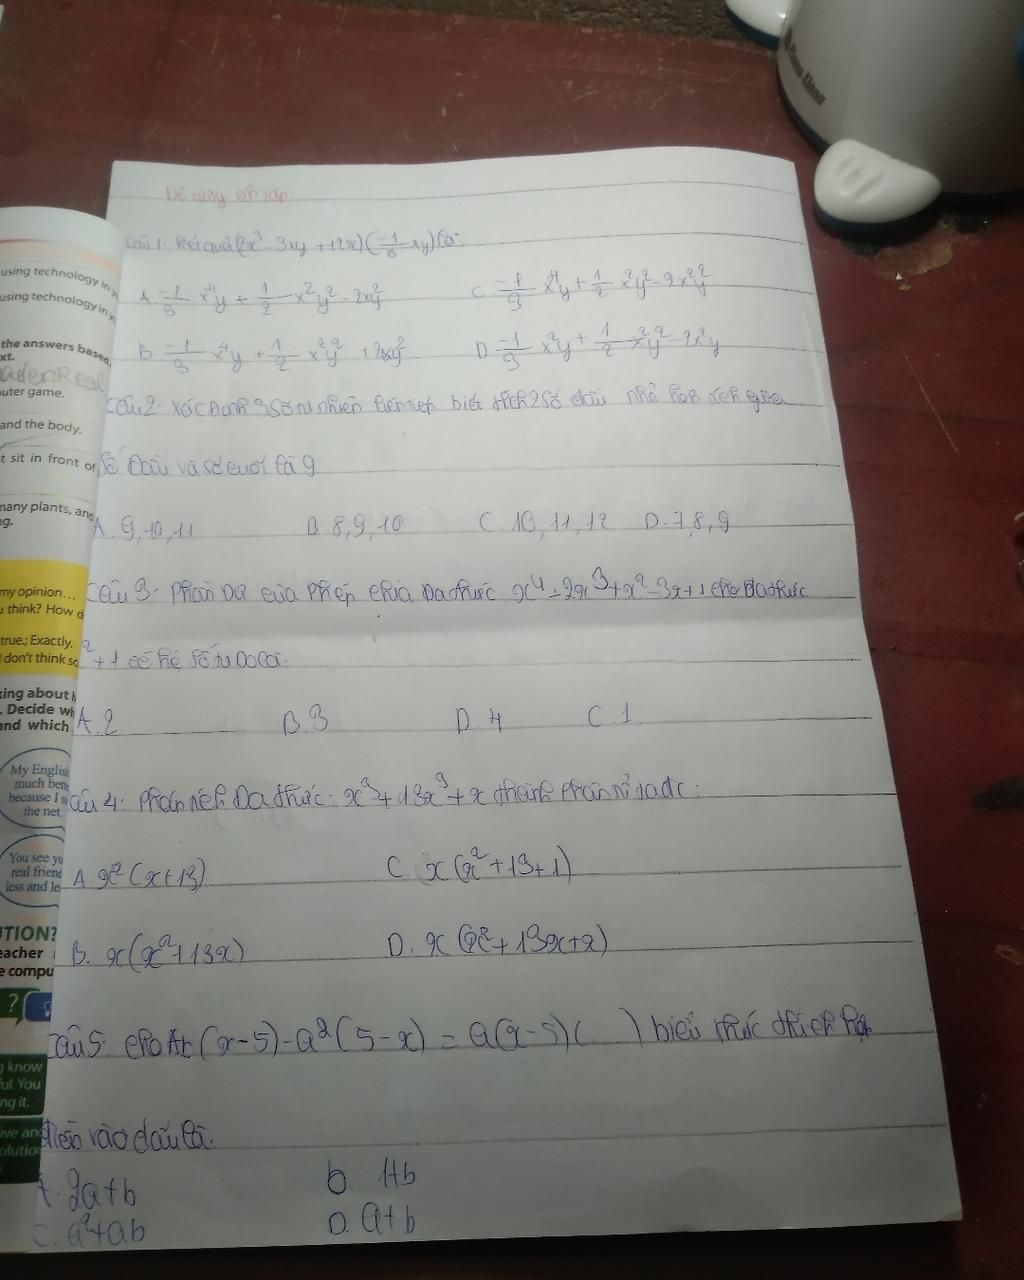 Đề cương ôn tập
Câu 1: Kết quả (2x³ - 3xy + 12x)(-1/6 xy) là:
A. -1/3 x⁴y + 1/2 x²y² - 2xy²
C. -1/3 x⁴y + 1/2 x²y² - 2x²y²
B. -1/3 x⁴y + 1/2 x²y² + 2xy²
D. -1/3 x²y + 1/2 x²y² - 2x²y
Câu 2: Xác Định 3 Số tự nhiên liên tiếp biết tích 2 số đầu nhỏ hơn tích giữa
Số Đầu và số cuối là 9
A. 9, 10, 11 B. 8, 9, 10 C. 10, 11, 12 D. 7, 8, 9
Câu 3: Phần Dư của Phép chia Đa thức x⁴ - 2x³ + x² - 3x + 1 cho Đa thức
² + 1 có hệ số tự Do là:
A. 2 B. 3 D. 4 C. 1
âu 4: Phân tích Đa thức: x³ + 13x³ + x thành Phân tử ta đc:
A. x² (x + 13) C. x (x² + 13 + 1)
B. x(x² + 13x) D. x (x² + 13x + x)
Câu 5: cho Ab (x - 5) - a² (5 - x) = a(x - 5) ( ) biểu thức thích hợp
điền vào dấu là:
A. 2a + b b. 1 + b
C. a² + ab D. a + b
using technology in
using technology in
the answers based
xt.
uter game.
and the body.
t sit in front of
many plants, and
ng.
my opinion...
u think? How d
true.; Exactly.
I don't think so
king about
. Decide wh
and which
My English
much bett
because I s
the net.
You see yo
real friend
less and le
UTION?
eacher
e compu
?
g know
ful. You
ng it.
ive and
olution